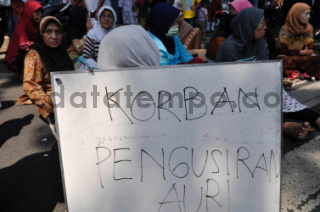 datatempo.co
KORBAN
PENGUSIRAN
AURI